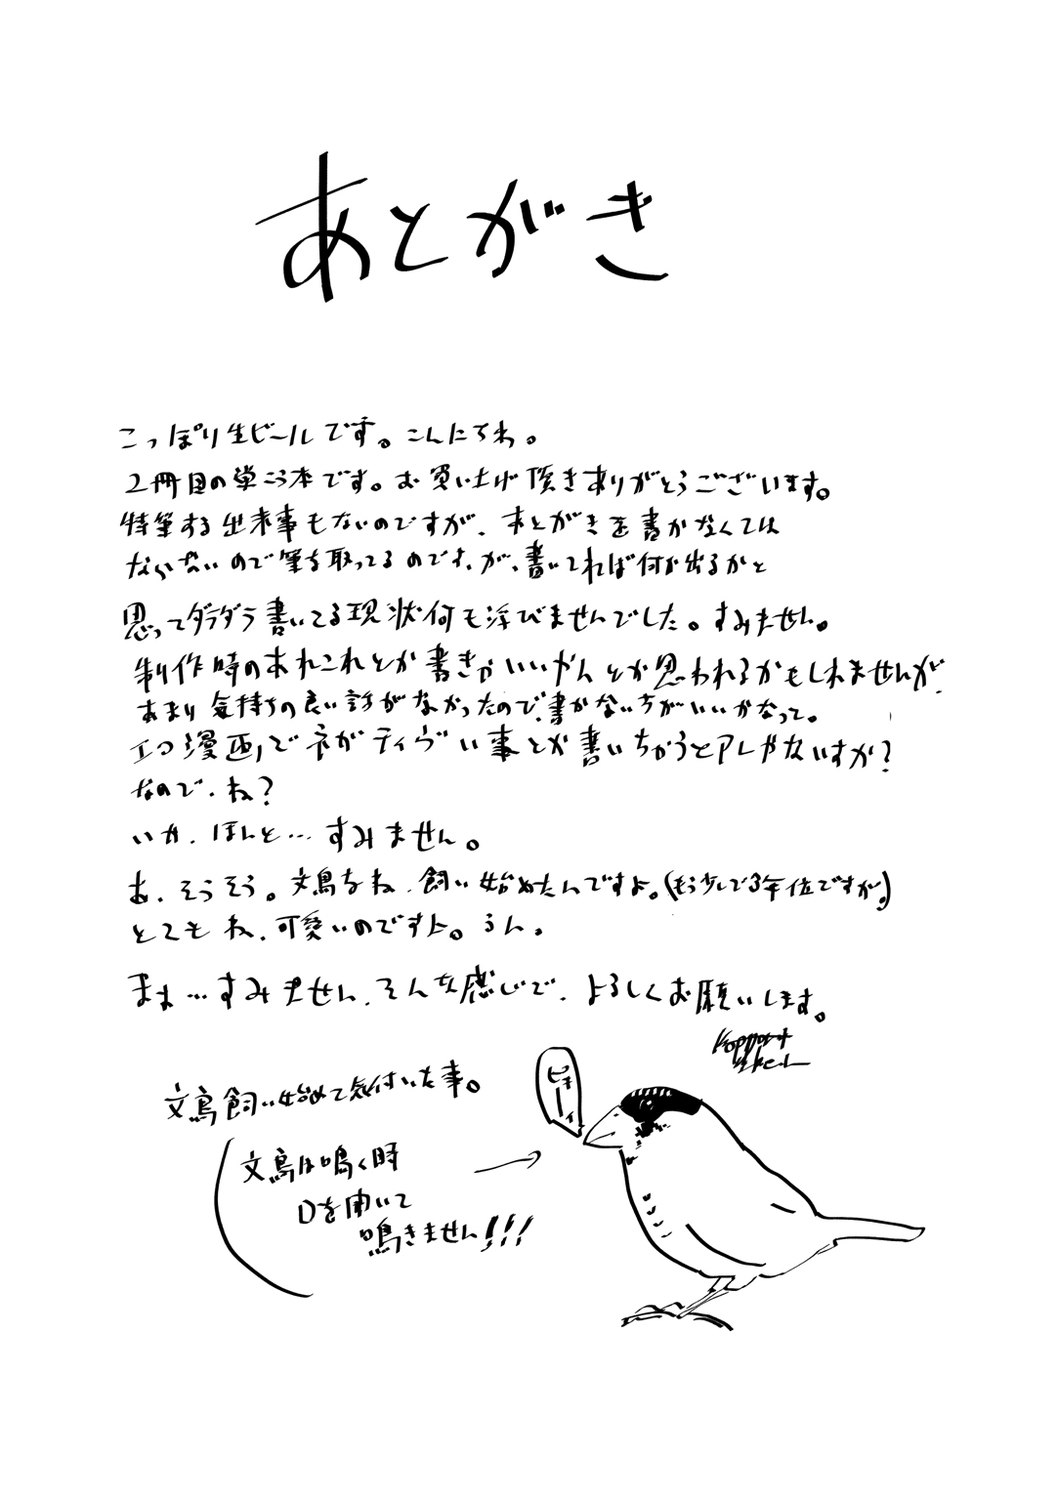 あとがき
こっぽり生ビールです。こんにちわ。
2冊目の単こう本です。お買い上げ頂きありがとうございます。
特筆する出来事もないのですが、あとがきを書かなくては
ならないので筆を取ってるのです、が、書いてれば何か出るかと
思ってダラダラ書いてる現状何も浮びませんでした。すみません。
制作時のあれこれとか書きゃいいやんとか思われるかもしれませんが、
あまり気持ちの良い話がなかったので、書かない方がいいかなって。
エロ漫画でネガティヴい事とか書いちゃうとアレじゃないすか?
なので、ね?
いや、ほんと…すみません。
あ、そうそう。文鳥をね、飼い始めたんですよ。(もう少しで3年位ですが。)
とてもね、可愛いのですよ。うん。
まぁ…すみません、そんな感じで、よろしくお願いします。
文鳥飼い始めて気付いた事。
文鳥は鳴く時
口を開いて
鳴きません!!!